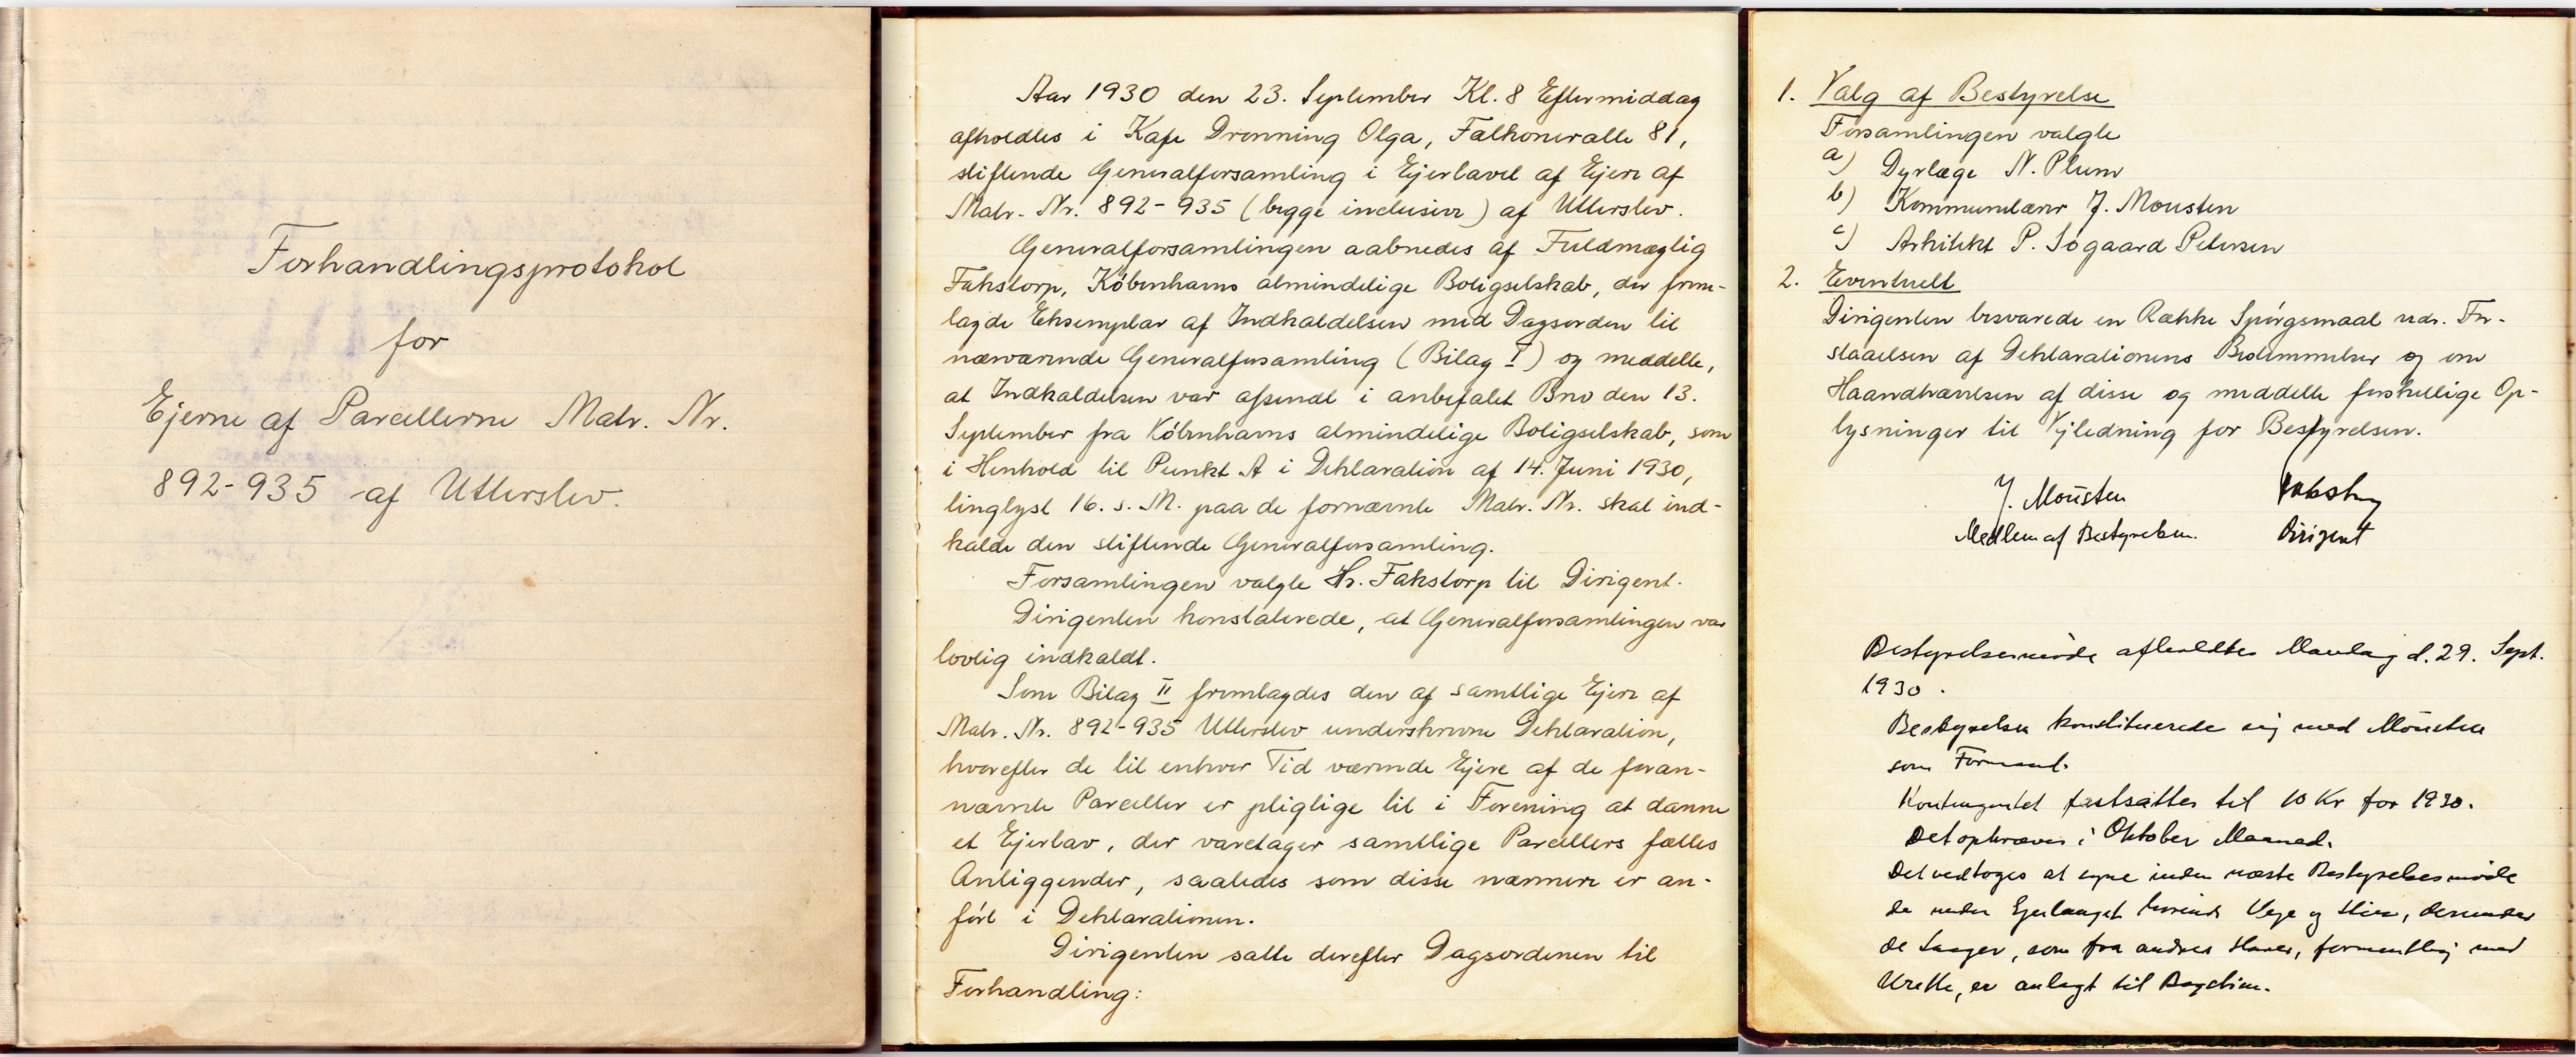 Forhandlingsprotokol
for
Ejerne af Parcellerne Matr. Nr.
892-935 af Utterslev.
Aar 1930 den 23. September Kl. 8 Eftermiddag
afholdtes i Kafe Dronning Olga, Falkoneralle 81,
stiftende Generalforsamling i Ejerlavet af Ejere af
Matr. Nr. 892-935 (begge inclusive) af Utterslev.
Generalforsamlingen aabnedes af Fuldmægtig
Fakstorp, Københavns almindelige Boligselskab, der frem-
lagde Eksemplar af Indkaldelsen med Dagsorden til
nærværende Generalforsamling (Bilag I) og meddelte,
at Indkaldelsen var afsendt i anbefalet Brev den 13.
September fra Københavns almindelige Boligselskab, som
i Henhold til Punkt A i Deklaration af 14. Juni 1930,
tinglyst 16. s. M. paa de fornævnte Matr. Nr. skal ind-
kalde den stiftende Generalforsamling.
Forsamlingen valgte Hr. Fakstorp til Dirigent.
Dirigenten konstaterede, at Generalforsamlingen var
lovlig indkaldt.
Som Bilag II fremlagdes den af samtlige Ejere af
Matr. Nr. 892-935 Utterslev underskrevne Deklaration,
hvorefter de til enhver Tid værende Ejere af de foran-
nævnte Parceller er pligtige til i Forening at danne
et Ejerlav, der varetager samtlige Parcellers fælles
Anliggender, saaledes som disse nærmere er an-
ført i Deklarationen.
Dirigenten satte derefter Dagsordenen til
Forhandling:
1. Valg af Bestyrelse
Forsamlingen valgte
a) Dyrlæge N. Plum
b) Kommunelærer J. Mousten
c) Arkitekt P. Søgaard Petersen
2. Eventuelt
Dirigenten besvarede en Række Spørgsmaal vedr. For-
staaelsen af Deklarationens Bestemmelser og om
Haandhævelsen af disse og meddelte forskellige Op-
lysninger til Vejledning for Bestyrelsen.
J. Mousten Fakstorp
Medlem af Bestyrelsen. Dirigent
Bestyrelsesmøde afholdtes Mandag d. 29. Sept.
1930.
Bestyrelsen konstituerede sig med Mousten
som Formand.
Kontingentet fastsattes til 10 Kr for 1930.
Det opkræves i Oktober Maaned.
Det vedtoges at syne inden næste Bestyrelsesmøde
de under Ejerlauget hørende Veje og Stier, derunder
de Laager, som fra andres Haver, formentlig med
Urette, er anlagt til Bagstien.